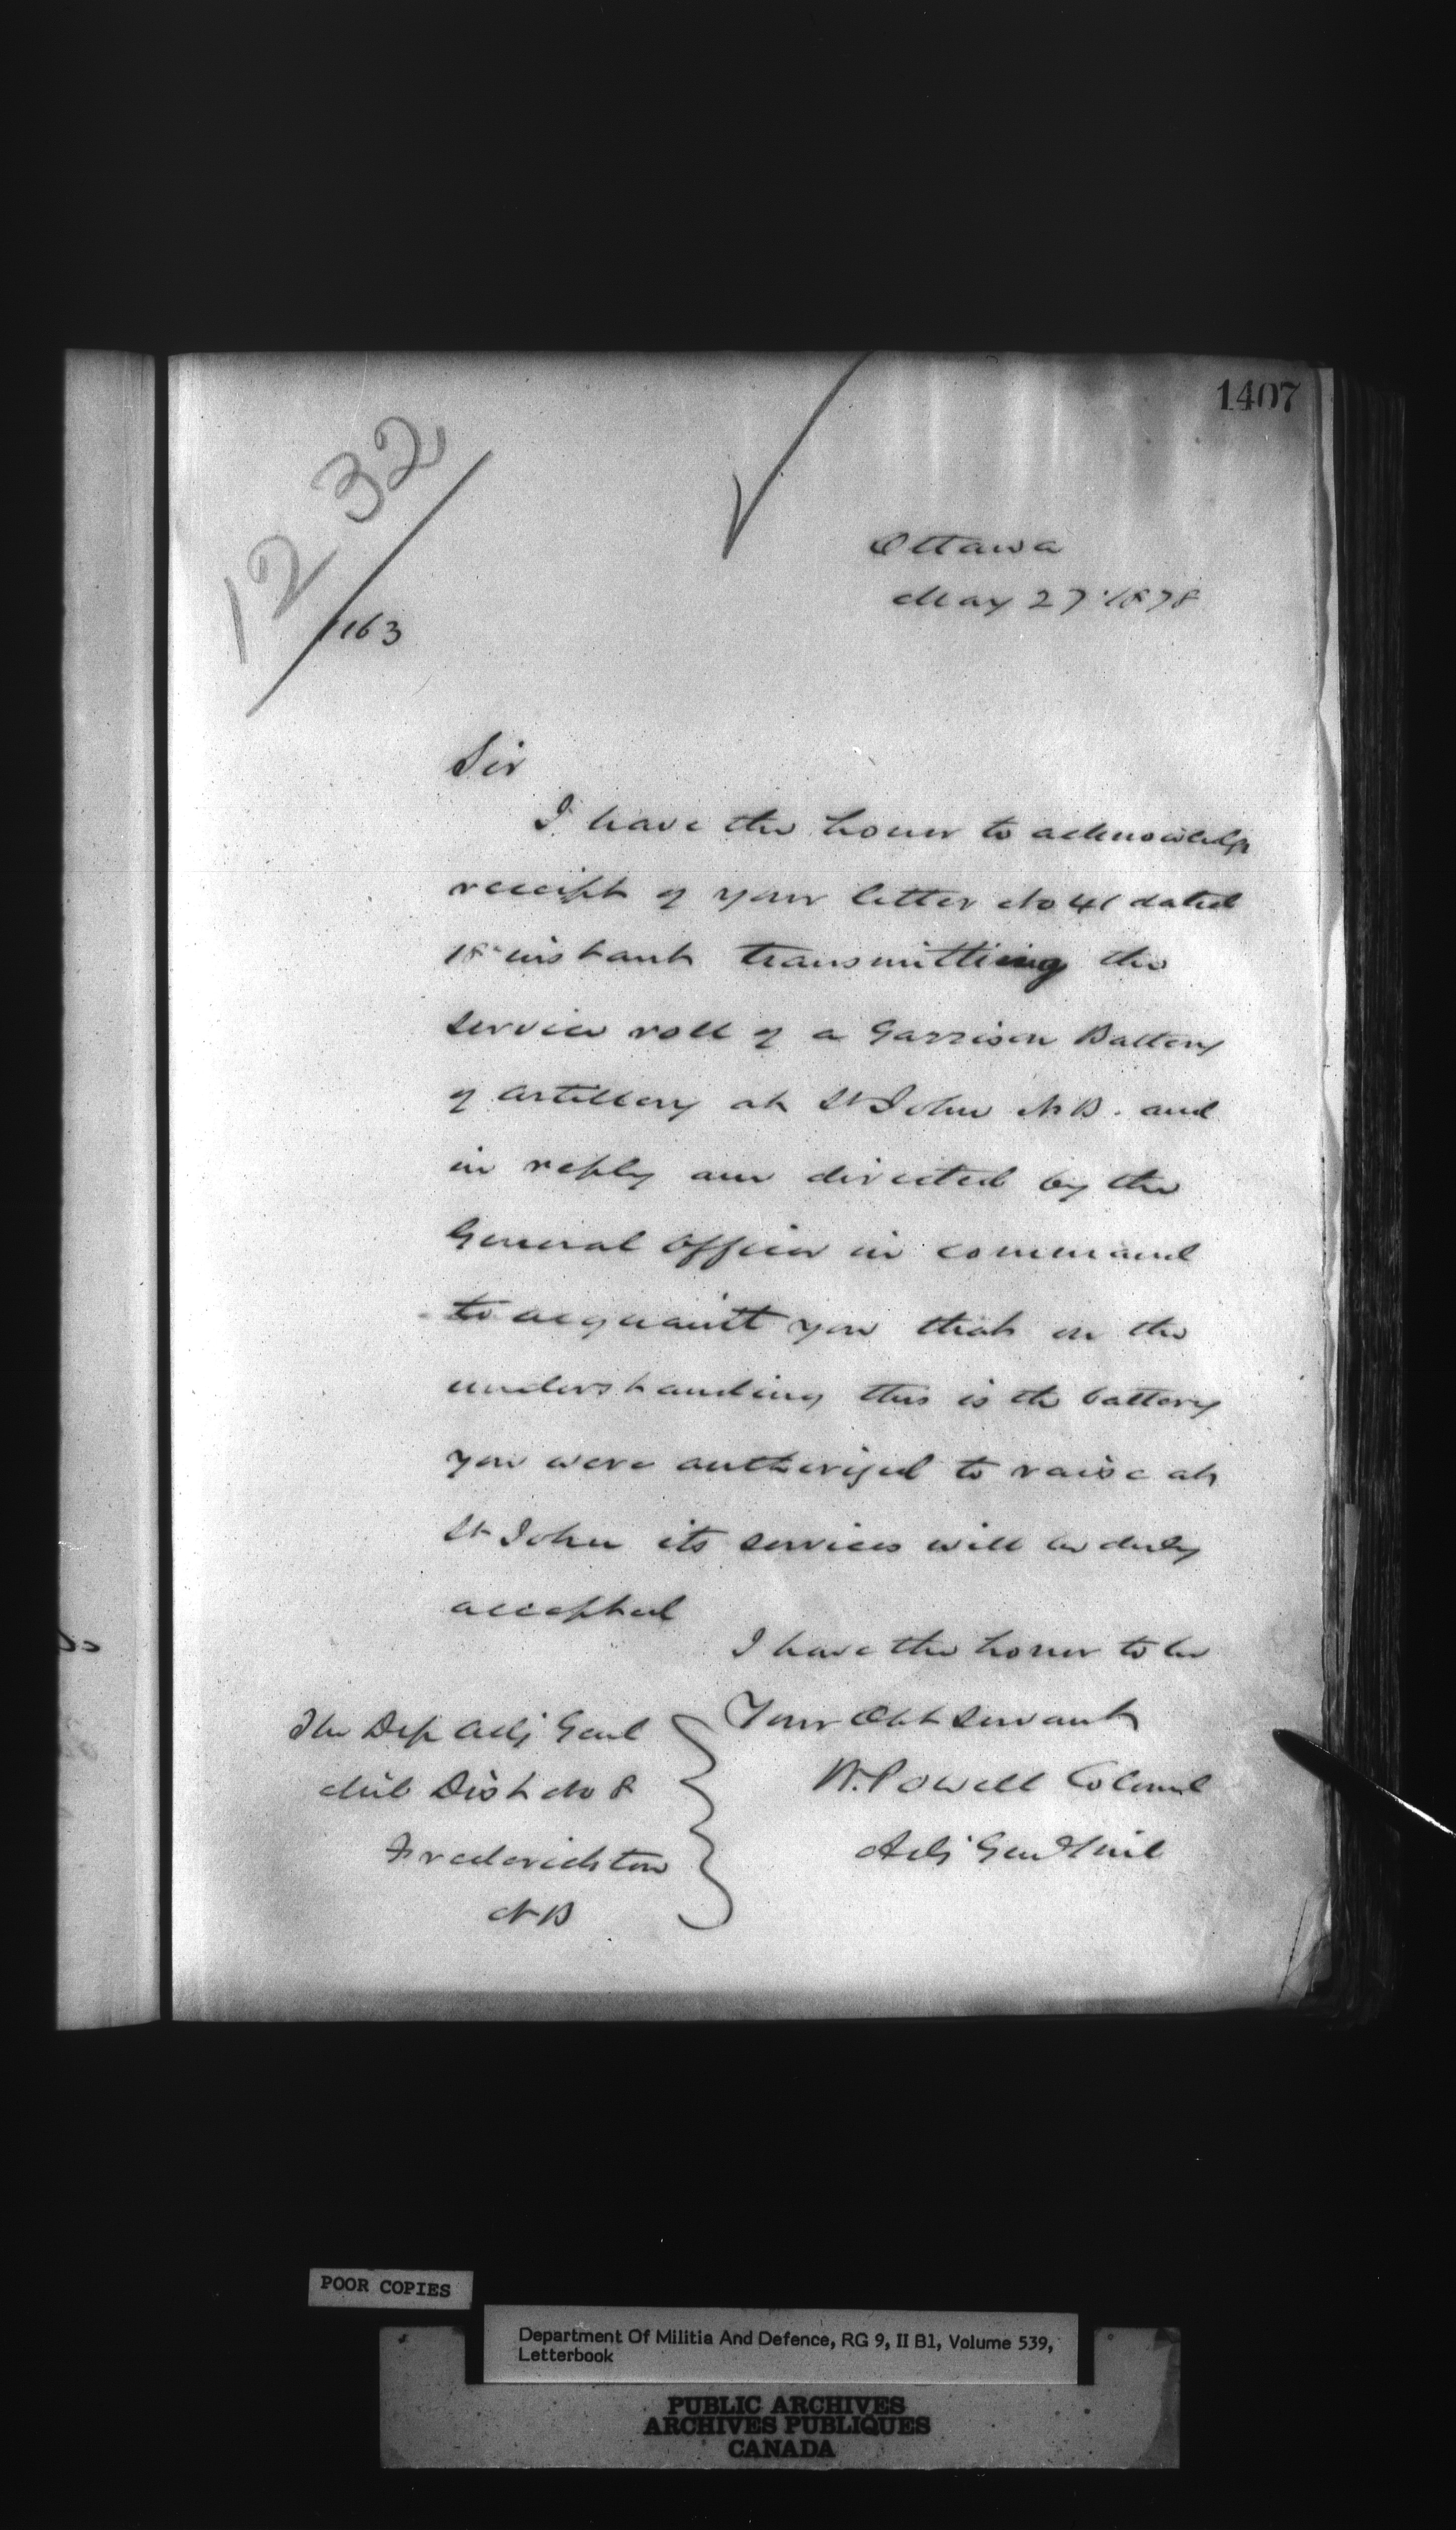 1407
1232
1163
Ottawa
May 27 1878
Sir
I have the honor to acknowledge
receipt of your letter No 41 dated
18 instant transmitting the
service roll of a Garrison Battery
of Artillery at St John N.B. and
in reply am directed by the
General Officer in command
to acquaint you that on the
understanding this is the battery
you were authorized to raise at
St John its services will be duly
accepted
I have the honor to be
Your Obt Servant
W. Powell Colonel
Adj Gen Mil
The Dep Adj Genl
Mil Dist No 8
Fredericton
NB
POOR COPIES
Department Of Militia And Defence, RG 9, II B1, Volume 539,
Letterbook
PUBLIC ARCHIVES
ARCHIVES PUBLIQUES
CANADA